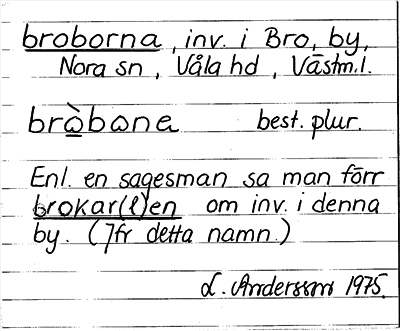 broborna, inv. i Bro, by,
Nora sn, Våla hd, Västm.l.
brὼbɷna best. plur.
Enl. en sagesman sa man förr
brokar(l)en om inv. i denna
by. (Jfr detta namn.)
L. Andersson 1975.